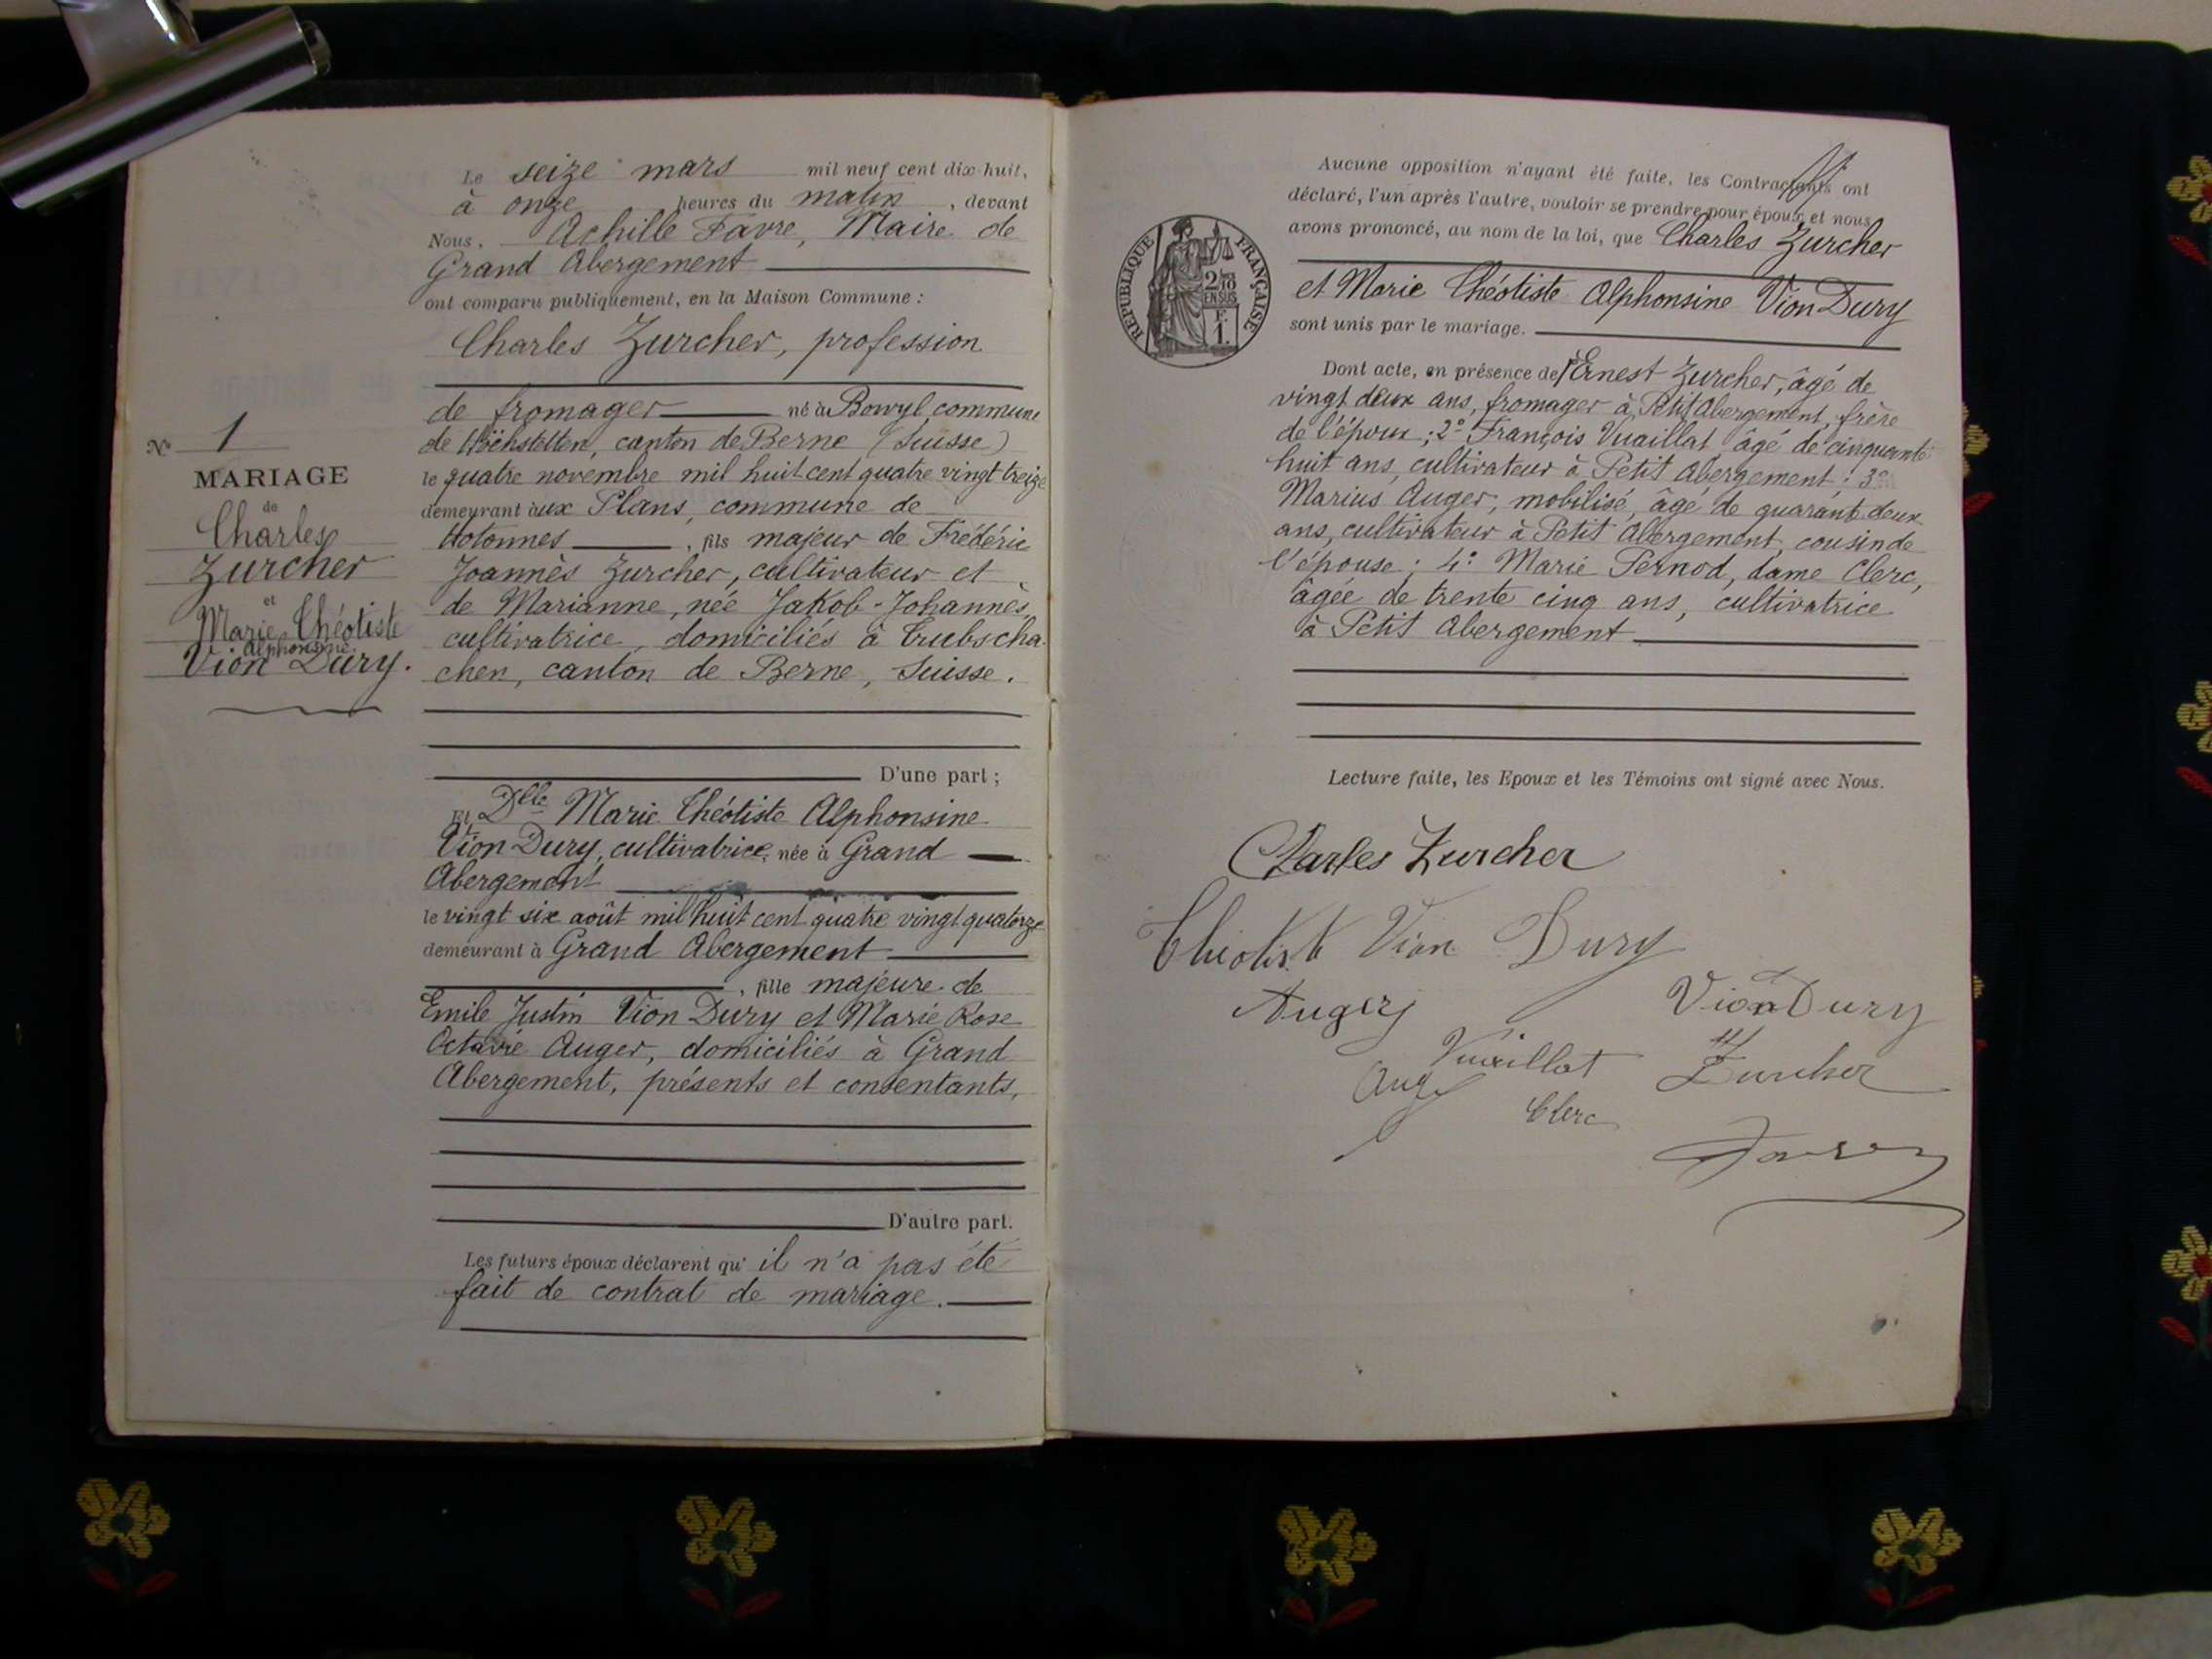 N° 1
MARIAGE
de
Charles
Zurcher
et
Marie Théotiste
Alphonsine
Vion Dury.
Le seize mars mil neuf cent dix-huit,
à onze heures du matin, devant
Nous, Achille Favre, Maire de
Grand Abergement
ont comparu publiquement, en la Maison Commune :
Charles Zurcher, profession
de fromager né à Bowyl, commune
de Höchstetten, canton de Berne (Suisse)
le quatre novembre mil huit cent quatre vingt treize
demeurant aux Plans, commune de
Hotonnes, fils majeur de Frédéric
Joannès Zurcher, cultivateur et
de Marianne, née Jakob-Johannès,
cultivatrice, domiciliés à Trubscha-
chen, canton de Berne, Suisse.
D'une part ;
Et Dlle Marie Théotiste Alphonsine
Vion Dury, cultivatrice, née à Grand
Abergement
le vingt six août mil huit cent quatre vingt quatorze
demeurant à Grand Abergement
, fille majeure de
Emile Justin Vion Dury et Marie Rose
Octavie Auger, domiciliés à Grand
Abergement, présents et consentants,
D'autre part.
Les futurs époux déclarent qu'il n'a pas été
fait de contrat de mariage.
RÉPUBLIQUE FRANÇAISE
2/10
EN SUS
F.
1.
Aucune opposition n'ayant été faite, les Contractants ont
déclaré, l'un après l'autre, vouloir se prendre pour époux et nous
avons prononcé, au nom de la loi, que Charles Zurcher
et Marie Théotiste Alphonsine Vion Dury
sont unis par le mariage.
Dont acte, en présence de Ernest Zurcher, âgé de
vingt deux ans, fromager à Petit Abergement, frère
de l'époux ; 2° François Vuaillat âgé de cinquante
huit ans, cultivateur à Petit Abergement ; 3°
Marius Auger, mobilisé, âgé de quarante deux
ans, cultivateur à Petit Abergement, cousin de
l'épouse ; 4° Marie Pernod, dame Clerc,
âgée de trente cinq ans, cultivatrice
à Petit Abergement
Lecture faite, les Epoux et les Témoins ont signé avec Nous.
Charles Zurcher
Vion Dury
Auger
Vion Dury
Vuaillat
Zurcher
Clerc